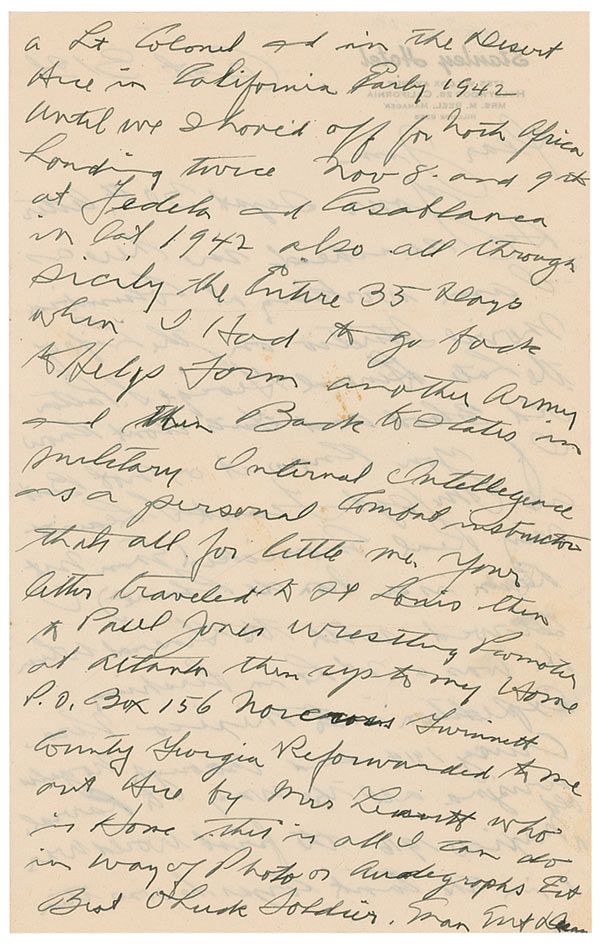 a Lt Colonel and in the Desert
Here in California Early 1942
Until we Shoved off for North Africa
Landing twice Nov 8. and 9th
at Fedela and Casablanca
in Oct 1942 also all through
Sicily the Entire 35 Days
when I Had to go back
to Help Form another Army
and then Back to States in
military Internal Intellegence
as a personal Combat instructor
thats all for little me. Your
letter traveled to St Louis then
to Paul Jones Wrestling Promoter
at Atlanta then up to my Home
P.O. Box 156 Norcross Gwinnett
County Georgia Reforwarded to me
out Here by Mrs who
is Home this is all I can do
in way of Photo or Autographs
Best O Luck Soldier.
Stanley Hotel
HOLLYWOOD 28, CALIFORNIA
MRS. M. BEEL, MANAGER